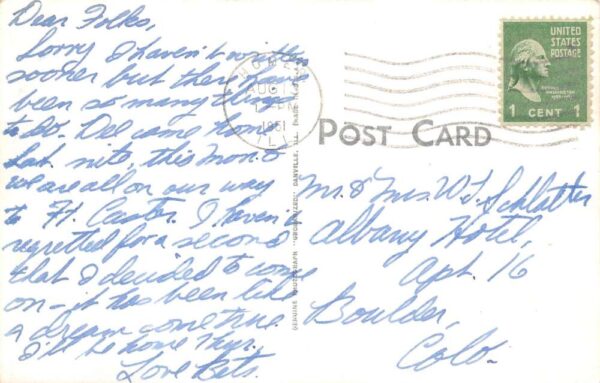 Dear Folks,
Sorry I haven't written
sooner but there have
been so many things
to do. Del came home
Sat. nite, this Mon. &
we are all on our way
to Ft. Custer. I haven't
regretted for a second
that I decided to come
on - it has been like
a dream come true.
I'll be home Thur.
Love Bets.
AUG
1951
UNITED
STATES
POSTAGE
1 CENT 1
POST CARD
GENUINE PHOTOGRAPH DANVILLE, ILL.
Mr. & Mrs. W. J. Schlatter
Albany Hotel,
Apt. 16
Boulder,
Colo.